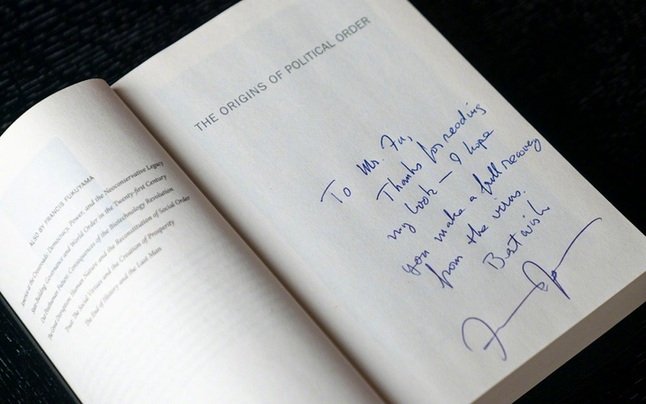 ALSO BY FRANCIS FUKUYAMA
America at the Crossroads: Democracy, Power, and the Neoconservative Legacy
State-Building: Governance and World Order in the Twenty-first Century
Our Posthuman Future: Consequences of the Biotechnology Revolution
The Great Disruption: Human Nature and the Reconstitution of Social Order
Trust: The Social Virtues and the Creation of Prosperity
The End of History and the Last Man
THE ORIGINS OF POLITICAL ORDER
To Mr. Fu,
Thanks for reading
my book — I hope
you make a full recovery
from the virus.
Best wish